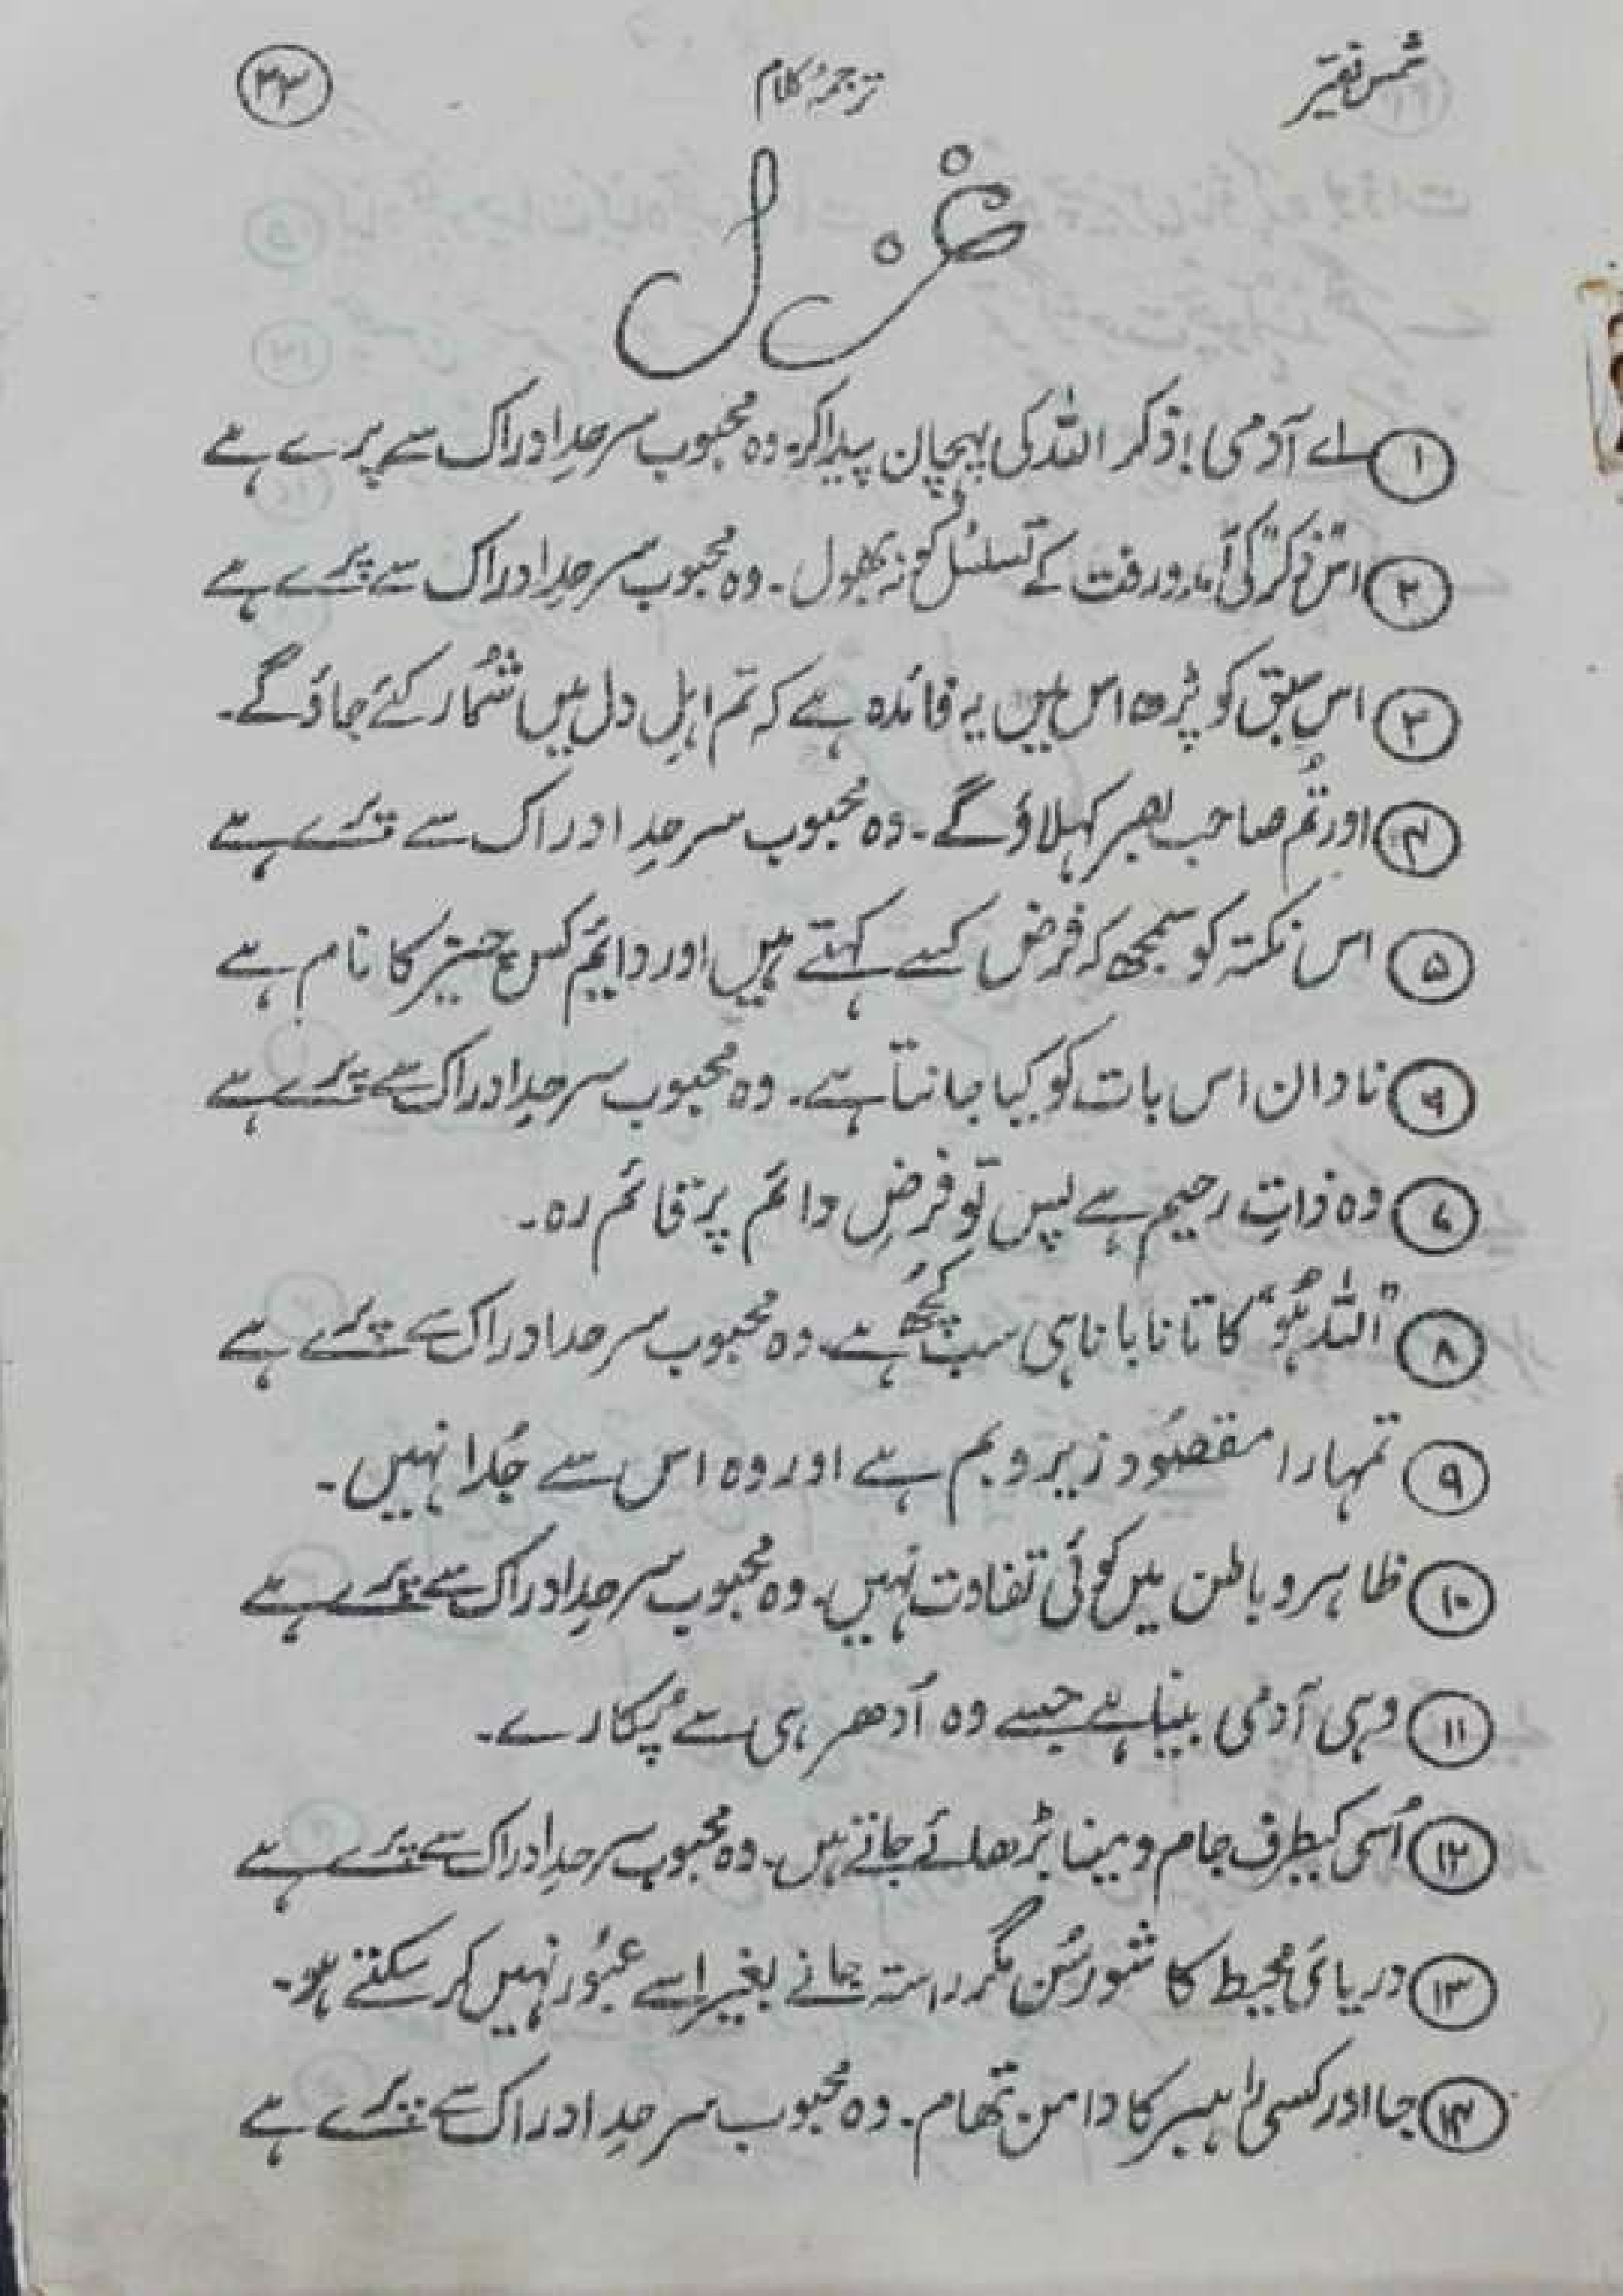 شمس فقیر
ترجمۂ کلام
۳۳
غزل
۱ اے آدمی! ذکر اللہ کی پہچان پیدا کر۔ وہ محبوب سرحدِ ادراک سے پرے ہے
۲ اس ذکر کی آمد و رفت کے تسلسل کو نہ بھول۔ وہ محبوب سرحدِ ادراک سے پرے ہے
۳ اس سبق کو پڑھ اس میں یہ فائدہ ہے کہ تم اہلِ دل میں شمُار کئے جاؤ گے۔
۴ اور تُم صاحب بصر کہلاؤ گے۔ وہ محبوب سرحدِ ادراک سے پرے ہے
۵ اس نکتہ کو سمجھ کہ فرض کسے کہتے ہیں اور دایٔم کس چیز کا نام ہے
۶ نادان اس بات کو کیا جانتا ہے۔ وہ محبوب سرحدِ ادراک سے پرے ہے
۷ وہ ذاتِ رحیم ہے پس تو فرضِ دائم پر قائم رہ۔
۸ "اللہ ہُو" کا تانا بانا ہی سب کُچھ ہے۔ وہ محبوب سرحد ادراک سے پرے ہے
۹ تمہارا مقصُود زیر و بم ہے اور وہ اس سے جُدا نہیں۔
۱۰ ظاہر و باطن میں کوئی تفاوت نہیں۔ وہ محبوب سرحدِ ادراک سے پرے ہے
۱۱ وہی آدمی بینا ہے جسے وہ اُدھر ہی سے پُکارے۔
۱۲ اُسی کیطرف جام و مینا بڑھائے جاتے ہیں۔ وہ محبوب سرحدِ ادراک سے پرے ہے
۱۳ دریائی محیط کا شور سُن مگر راستہ جانے بغیر اِسے عبُور نہیں کر سکتے ہو۔
۱۴ جا اور کسی راہبر کا دامن تھام۔ وہ محبوب سرحدِ ادراک سے پرے ہے